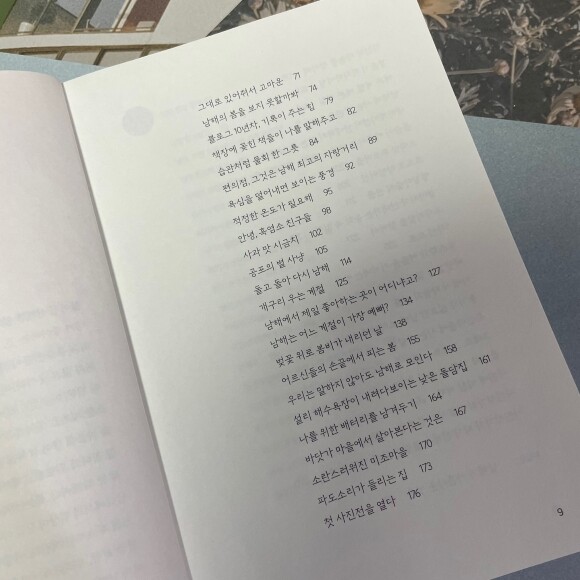 그대로 있어줘서 고마운 71
남해의 봄을 보지 못할까봐 74
블로그 10년차, 기록이 주는 힘 79
책장에 꽂힌 책들이 나를 말해주고 82
습관처럼 물회 한 그릇 84
편의점, 그것은 남해 최고의 자랑거리 89
욕심을 덜어내면 보이는 풍경 92
적정한 온도가 필요해 95
안녕, 흑염소 친구들 98
사과 맛 시금치 102
공포의 벌 사냥 105
돌고 돌아 다시 남해 114
개구리 우는 계절 125
남해에서 제일 좋아하는 곳이 어디냐고? 127
남해는 어느 계절이 가장 예뻐? 134
벚꽃 위로 봄비가 내리던 날 138
어르신들의 손끝에서 피는 봄 155
우리는 말하지 않아도 남해로 모인다 158
설리 해수욕장이 내려다보이는 낮은 돌담집 161
나를 위한 배터리를 남겨두기 164
바닷가 마을에서 살아본다는 것은 167
소란스러워진 미조마을 170
파도소리가 들리는 집 173
첫 사진전을 열다 176
9